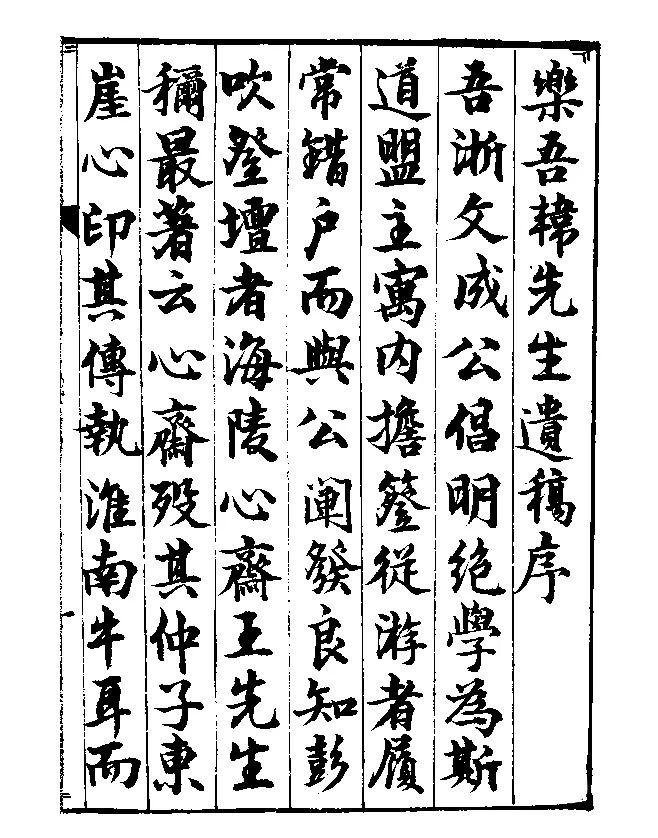 樂吾韓先生遺稿序
吾浙文成公倡明絕學為斯
道盟主寓內擔簦從游者屨
常錯戶而與公闡發良知彭
吹登壇者海陵心齋王先生
稱最著云心齋歿其仲子東
崖心印其傳執淮南牛耳而